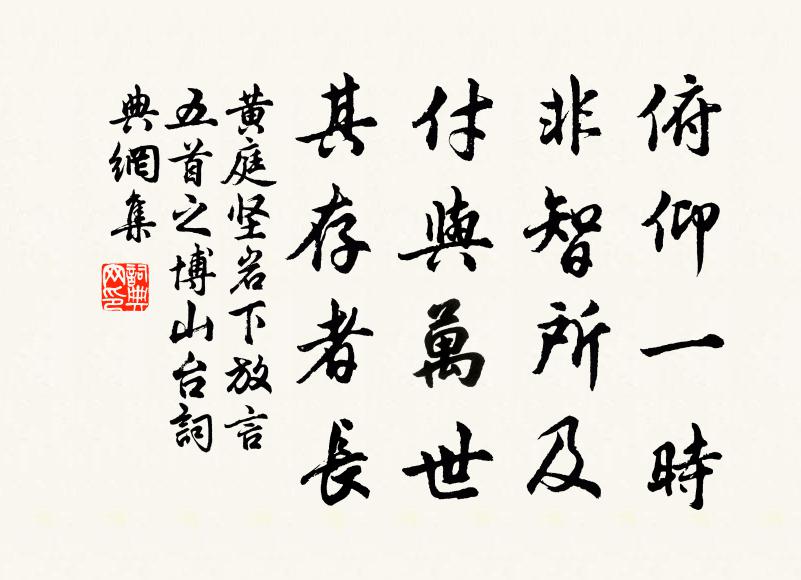 俯仰一時
非智所及
付與萬世
其存者長
黄庭坚岩下放言
五首之博山台詞
典網集
詞典网印